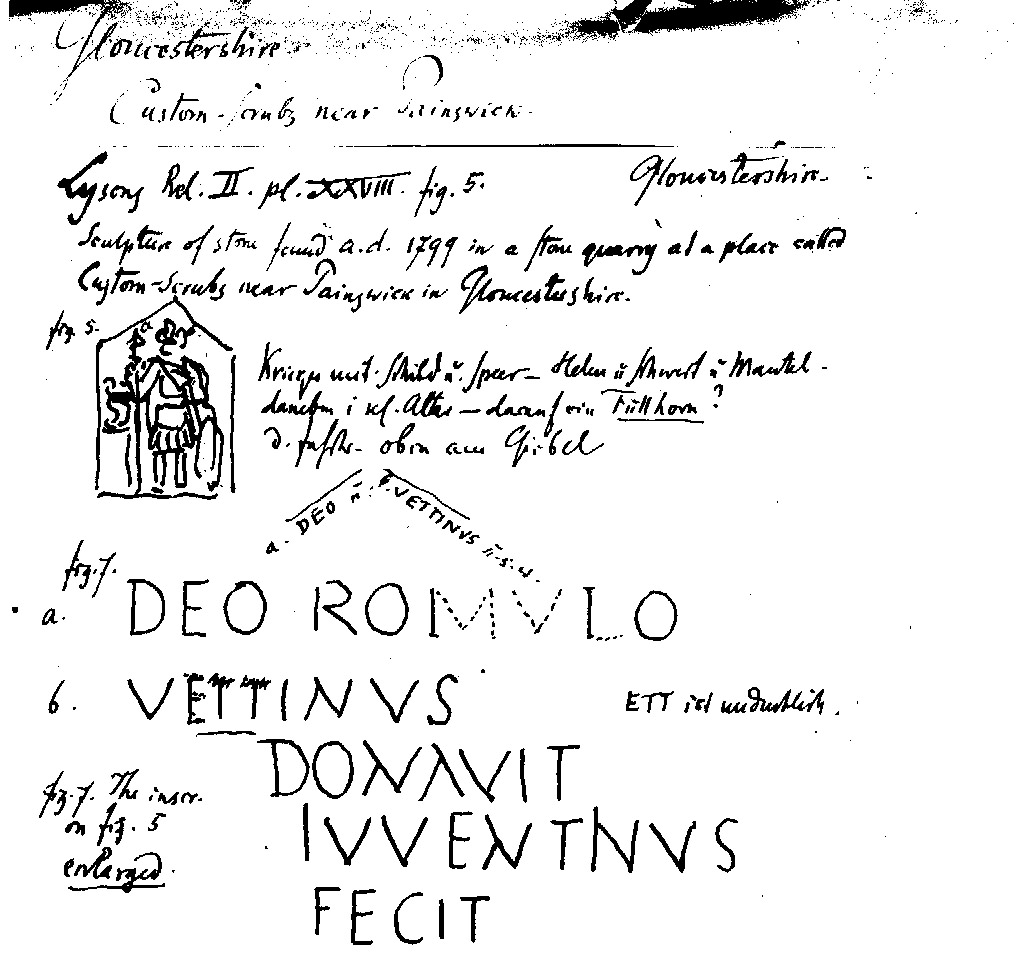 Gloucestershire
Custom-Scrubs near Painswick.
Lysons Rel. II. pl. XXVIII. fig. 5. Gloucestershire.
Sculpture of stone found a.d. 1799 in a stone quarry at a place called
Custom-Scrubs near Painswick in Gloucestershire.
fig. 5. a
Krieger mit Schild ū. Speer – Helm ū Schwert ū Mantel –
daneben i kl. Altar – darauf ein Füllhorn?
oben am Giebel
a. DEO ū. b. VETTINUS ū. s. w.
fig. 7.
a. DEO ROMVLO
b. VETTINVS ETT ist undeutlich.
DONAVIT
fig. 7. The inscr.
on fig. 5
enlarged.
IVVENTINVS
FECIT